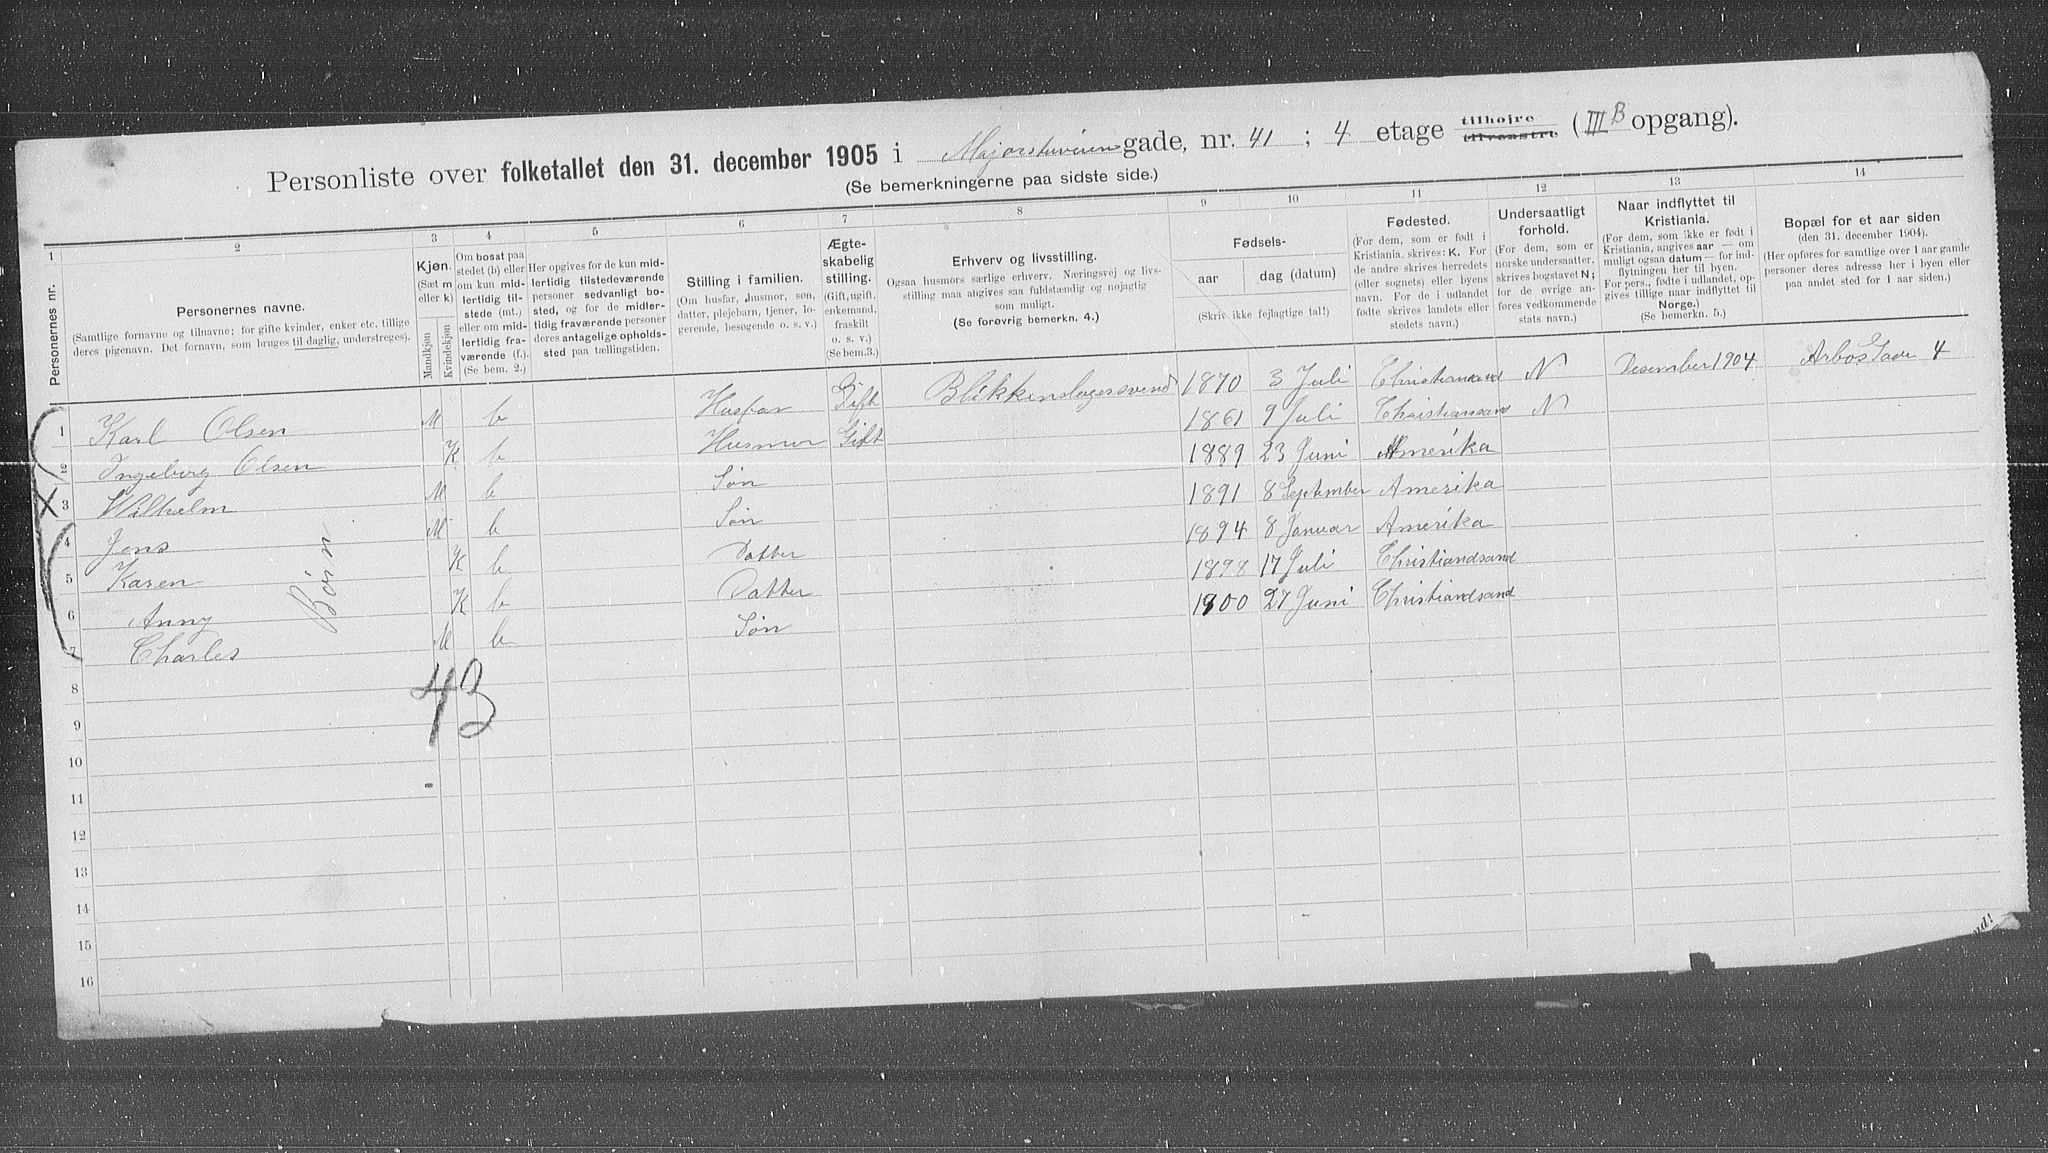 Personliste over folketallet den 31. december 1905 i Majorstuveien gade, nr. 41 ; 4 etage tilhøjre tilvenstre (III B opgang).
(Se bemerkningerne paa sidste side.)
1 2 3 4 5 6 7 8 9 10 11 12 13 14
Personernes nr.
Personernes navne.
(Samtlige fornavne og tilnavne; for gifte kvinder, enker etc. tillige
deres pigenavn. Det fornavn, som bruges til daglig, understreges).
Kjøn.
(Sæt m
eller k)
Mandkjøn
Kvindekjøn.
Om bosat paa
stedet (b) eller
om kun mid-
lertidig til-
stede (mt.)
eller om mid-
lertidig fra-
værende (f.).
(Se bem. 2.)
Her opgives for de kun mid-
lertidig tilstedeværende
personer sedvanligt bo-
sted, og for de midler-
tidig fraværende personer
deres antagelige opholds-
sted paa tællingstiden.
Stilling i familien.
(Om husfar, husmor, søn,
datter, plejebarn, tjener, lo-
gerende, besøgende o. s. v.)
Ægte-
skabelig
stilling.
(Gift, ugift,
enkemand,
fraskilt
o. s. v.)
(Se bem.3.)
Erhverv og livsstilling.
Ogsaa husmors særlige erhverv. Næringsvej og livs-
stilling maa abgives saa fuldstændig og nøjagtig
som muligt.
(Se forøvrig bemerkn. 4.)
Fødsels-
aar
dag (datum)
(Skriv ikke fejlagtige tal!)
Fødested.
(For dem, som er født i
Kristiania, skrives: K. For
de andre skrives herredets
(eller sognets) eller byens
navn. For de i udlandet
fødte skrives landets eller
stedets navn.)
Undersaatligt
forhold.
(For dem, som er
norske undersaatter,
skrives bogstavet N;
for de øvrige an-
føres vedkommende
stats navn.)
Naar indflyttet til
Kristiania.
(For dem, som ikke er født i
Kristiania, angives aar — om
muligt ogsaa datum — for ind-
flytningen her til byen.
For pers., fødte i udlandet, op-
gives tillige naar indflyttet til
Norge.)
(Se bemerkn. 5.)
Bopæl for et aar siden
(den 31. december 1904).
(Her opføres for samtlige over 1 aar gamle
personer deres adresse her i byen eller
paa andet sted for 1 aar siden.)
1 Karl Olsen M b Husfar Gift Blikkenslagersvend 1870 3 Juli Christiansand N Desember 1904 Arbos Gade 4
2 Ingeborg Olsen K b Husmor Gift 1861 9 Juli Christiansand N
3 Wilhelm M b Søn 1889 23 Juni Amerika
4 Jens M b Søn 1891 8 September Amerika
5 Karen K b Datter 1894 8 Januar Amerika
6 Anny K b Datter 1898 17 Juli Christiandsand
7 Charles M b Søn 1900 27 Juni Christiandsand
Børn
43
8
9
10
11
12
13
14
15
16